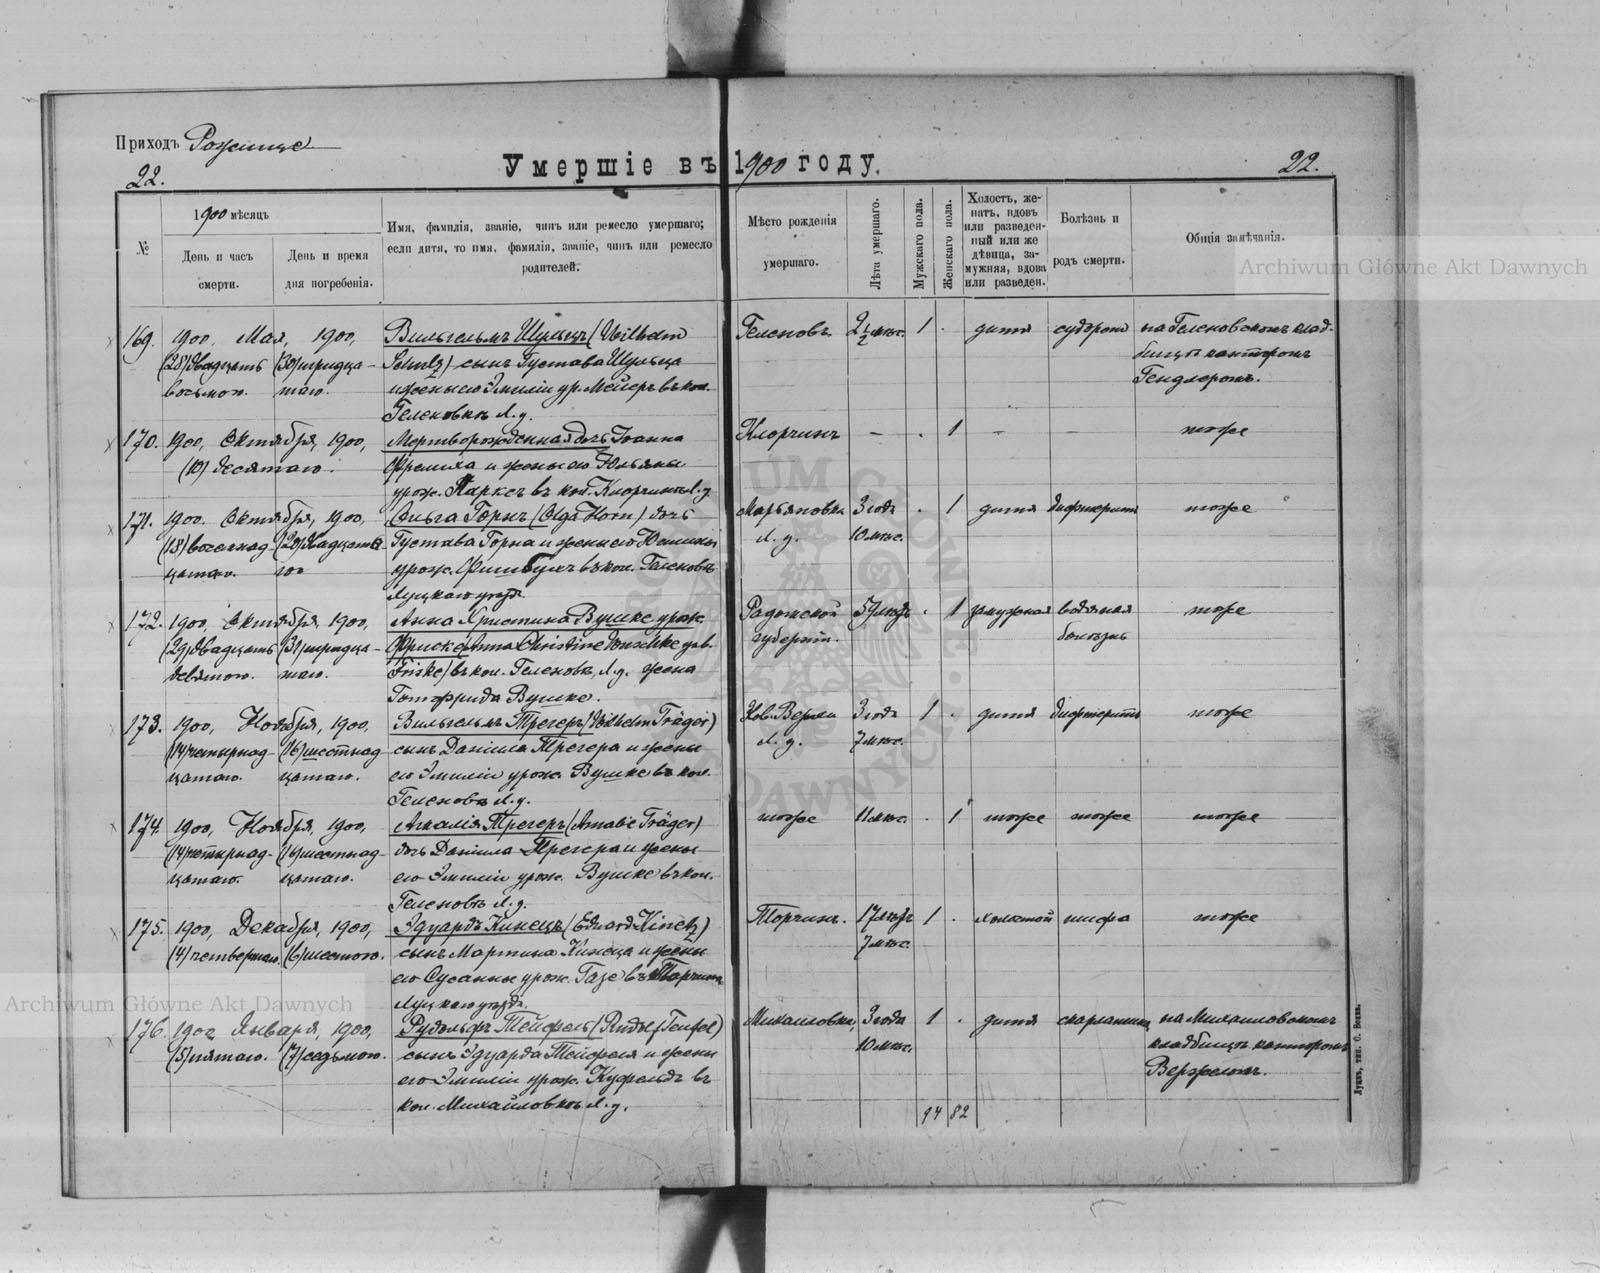 Приходъ Рожище
22.
Умершіе въ 1900 году.
22.
№
1900 мѣсяцъ
День и часъ
смерти.
День и время
дня погребенія.
Имя, фамилія, званіе, чинъ или ремесло умершаго;
если дитя, то имя, фамилія, званіе, чинъ или ремесло
родителей.
Мѣсто рожденія
умершаго.
Лѣта умершаго.
Мужскаго пола.
Женскаго пола.
Холостъ, же-
натъ, вдовъ
или разведен-
ный или же
дѣвица, за-
мужняя, вдова
или разведен.
Болѣзнь и
родъ смерти.
Общія замѣчанія.
169. 1900, Мая, 1900,
(28) двадцать
восьмого.
(30) тридца-
таго.
Вильгельмъ Шульцъ (Wilhelm
Schulz) сынъ Густава Шульца
и жены его Эмиліи ур. Мейеръ въ кол.
Геленовкѣ Л. у.
Геленовъ 2½ мѣс. 1 . дитя судороги на Геленовскомъ клад-
бищѣ канторомъ
170. 1900, Октября, 1900,
(10) десятаго.
Мертворожденная дочь Іоанна
и жены его Юльяны
урож. Марксъ въ кол. Л. у.
— . 1 — — тоже
171. 1900. Октября, 1900,
(18) восемнад-
цатаго.
(20) двадцата-
го
Ольга Горнъ (Olga Horn) дочь
Густава Горна и жены его
урож. въ кол. Геленовкѣ
Луцкаго уѣзда.
Марьяновка
Л. у.
3 года
10 мѣс.
. 1 дитя дифтеритъ тоже
172. 1900, Октября, 1900,
(29) двадцать
девятого.
(31) тридца-
таго.
Анна Христина Вушке урож.
Фриске (Anna Christine Wuschke geb.
Friske) въ кол. Геленовкѣ, Л. у. жена
Готфрида Вушке.
Радомской
губерніи.
59 лѣтъ . 1 замужняя водяная
болѣзнь
тоже
173. 1900, Ноября, 1900,
(14) четырнад-
цатаго.
(16) шестнад-
цатаго.
Вильгельмъ Трегеръ (Wilhelm Träger)
сынъ Даніила Трегера и жены
его Эмиліи урож. Вушке въ кол.
Геленовкѣ Л. у.
Л. у.
3 года
7 мѣс.
1 . дитя дифтеритъ тоже
174. 1900, Ноября, 1900,
(14) четырнад-
цатаго.
(16) шестнад-
цатаго.
Амалія Трегеръ (Amalie Träger)
дочь Даніила Трегера и жены
его Эмиліи урож. Вушке въ кол.
Геленовкѣ Л. у.
тоже 11 мѣс. . 1 тоже тоже тоже
175. 1900, Декабря, 1900,
(4) четвертаго. (6) шестого.
Эдуардъ Кинецъ (Eduard Kinetz)
сынъ Мартина Кинеца и жены
его Сусанны урож. Газе въ Торчинѣ
Луцкаго уѣзда.
Торчинъ. 17 лѣтъ
7 мѣс.
1 . холостой тоже
176. 1900, Января, 1900,
(5) пятаго. (7) седьмого.
Рудольфъ Тейфель (Rudolf Teufel)
сынъ Эдуарда Тейфеля и жены
его Эмиліи урож. Куфельдъ въ
кол. Михайловкѣ Л. у.
Михайловка, 3 года
10 мѣс.
1 . дитя скарлатина на Михайловскомъ
кладбищѣ канторомъ
94 82
Луцкъ, тип. С. Бонка.
Archiwum Główne Akt Dawnych
Archiwum Główne Akt Dawnych